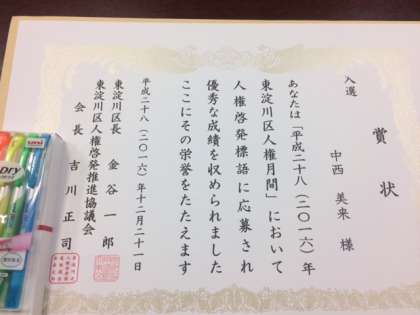 賞状
入選
中西 美来 様
あなたは「平成二十八(二〇一六)年
東淀川区人権月間」において
人権啓発標語に応募され
優秀な成績を収められました
ここにその栄誉をたたえます
平成二十八(二〇一六)年十二月二十一日
東淀川区長 金谷 一郎
東淀川区人権啓発推進協議会
会長 吉川 正司
uni
DRY